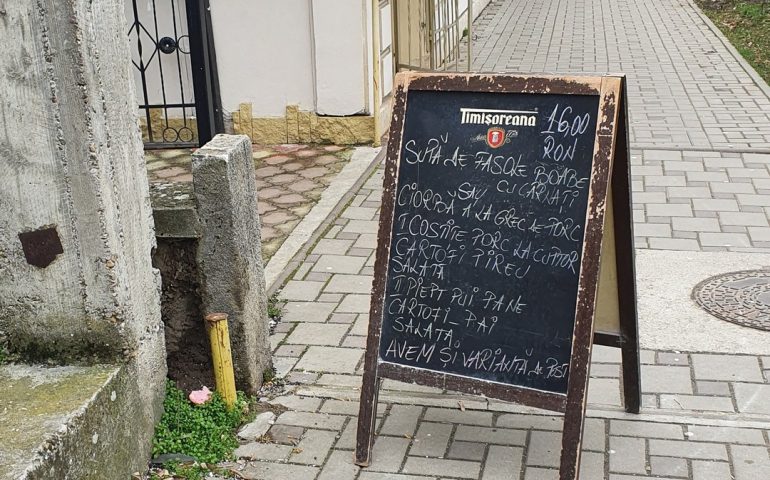 Timișoreana
1600
RON
SUPĂ de FASOLE BOABE
CU CÂRNAȚI
SAU
CIORBĂ A LA GREC de PORC
I COSTIȚE PORC LA CUPTOR
CARTOFI PIREU
SALATĂ
II PIEPT PUI PANE
CARTOFI PAI
SALATĂ
AVEM ȘI VARIANTĂ de POST